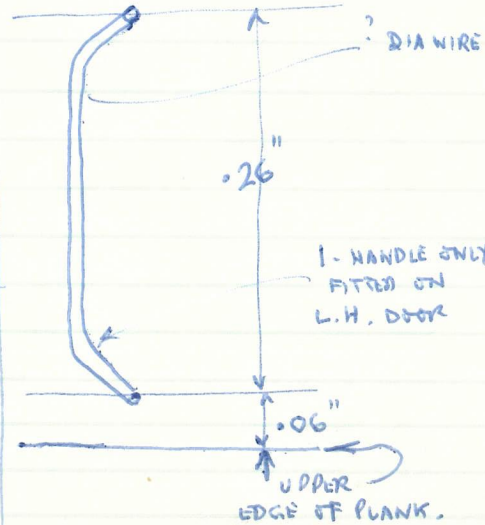 ? DIA WIRE
.26"
1- HANDLE ONLY
FITTED ON
L.H. DOOR
.06"
UPPER
EDGE OF PLANK.